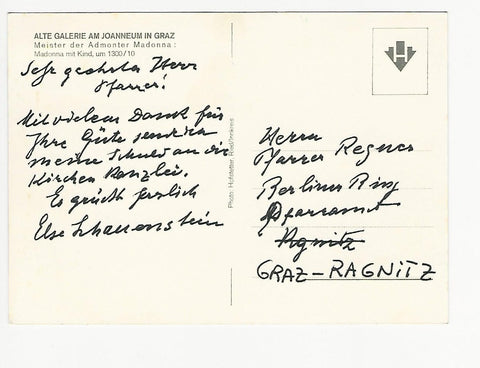 ALTE GALERIE AM JOANNEUM IN GRAZ
Meister der Admonter Madonna:
Madonna mit Kind, um 1300/10
Sehr geehrter Herr
Pfarrer!
Mit vielem Dank für
Ihre Güte sende ich
meine Schuld an die
Kirchen Kanzlei.
Es grüßt herzlich
Else Schauenstein
Photo: Hofstetter, Ried/Innkreis
H
Herrn
Pfarrer Regner
Berliner Ring
Pfarramt
Ragnitz
GRAZ-RAGNITZ